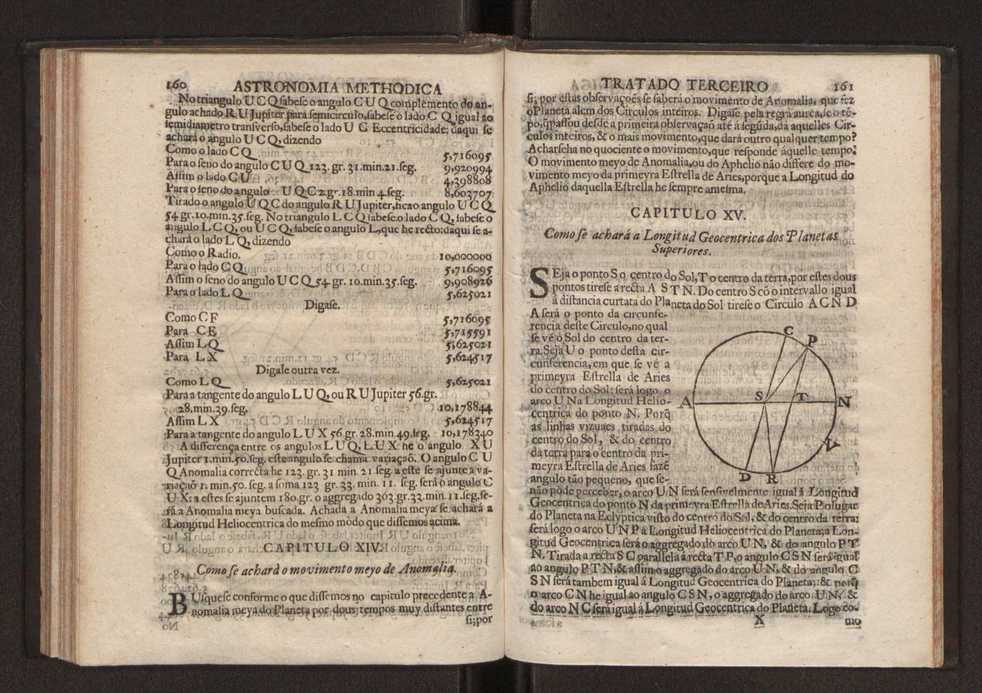 160 ASTRONOMIA METHODICA
No triangulo U C Q sabese o angulo C U Q complemento do an-
gulo achado R U Jupiter para semicirculo, sabese o lado C Q igual ao
semidiametro transverso, sabese o lado U G Eccentricidade; daqui se
achará o angulo U C Q, dizendo
Como o lado C Q 5,716095
Para o seno do angulo C U Q 123. gr. 31. min. 21. seg. 9,920994
Assim o lado C U 4,398808
Para o seno do angulo U Q C 2. gr. 18. min 4. seg. 8,603707
Tirado o angulo U Q C do angulo R U Jupiter, fica o angulo U C Q
54 gr. 10. min. 35. seg. No triangulo L C Q sabese o lado C Q, sabese o
angulo L C Q, ou U C Q, sabese o angulo L, que he recto: daqui se a-
chará o lado L Q, dizendo
Como o Radio. 10,000000
Para o lado C Q 5,716095
Assim o seno do angulo U C Q 54. gr. 10. min. 35. seg. 9,908926
Para o lado L Q 5,625021
Digase.
Como C F 5,716095
Para C E 5,715591
Assim L Q 5,625021
Para L X 5,624517
Digase outra vez.
Como L Q 5,625021
Para a tangente do angulo L U Q, ou R U Jupiter 56. gr.
28. min. 39. seg. 10,178844
Assim L X 5,624517
Para a tangente do angulo L U X 56. gr. 28. min. 49. seg. 10,178340
A differença entre os angulos L U Q, L U X he o angulo X U
Jupiter 1. min. 50. seg. este angulo se chama variaçaõ. O angulo C U
Q Anomalia correcta he 123. gr. 31 min. 21 seg. a este se ajunte a va-
riaçaõ 1. min. 50. seg. a soma 123 gr. 33. min. 11. seg. será o angulo C
U X: a estes se ajuntem 180. gr. o aggregado 303. gr. 33. min. 11. seg. se-
rá a Anomalia meya buscada. Achada a Anomalia meya se achará a
Longitud Heliocentrica do mesmo modo que dissemos acima.
CAPITULO XIV.
Como se achará o movimento meyo de Anomalia.
BUsquese conforme o que dissemos no capitulo precedente a A-
nomalia meya do Planeta por dous tempos muy distantes entre
si; por
TRATADO TERCEIRO 161
si; por estas observações se saberá o movimento de Anomalia, que fez
o Planeta alem dos Circulos inteiros. Digase pela regra aurea, se o tẽ-
po, q̃ passou desde a primeira observaçaõ até a segũda, dá aquelles Cir-
culos inteiros, & o mais movimento, que dará outro qualquer tempo?
Acharseha no quociente o movimento, que responde áquelle tempo.
O movimento meyo de Anomalia, ou do Aphelio não differe do mo-
vimento meyo da primeyra Estrella de Aries, porque a Longitud do
Aphelio daquella Estrella he sempre amesma.
CAPITULO XV.
Como se achará a Longitud Geocentrica dos Planetas
Superiores.
SEja o ponto S o centro do Sol, T o centro da terra, por estes dous
pontos tirese a recta A S T N. Do centro S cõ o intervallo igual
á distancia curtata do Planeta do Sol tirese o Circulo A C N D
A será o ponto da circunfe-
rencia deste Circulo, no qual
se vè o Sol do centro da ter-
ra. Seja U o ponto desta cir-
cunferencia, em que se vè a
primeyra Estrella de Aries
do centro do Sol: será logo o
arco U N a Longitud Helio-
centrica do ponto N. Porq̃
as linhas vizuaes tiradas do
centro do Sol, & do centro
da terra para o centro da pri-
meyra Estrella de Aries fazẽ
angulo tão pequeno, que se-
não póde perceber, o arco U N será sensivelmente igual á Longitud
Geocentrica do ponto N da primeyra Estrella de Aries. Seja P o lugar
do Planeta na Eclyptica visto do centro do Sol, & do centro da terra:
será logo o arco U N P a Longitud Heliocentrica do Planeta; a Lon-
gitud Geocentrica será o aggregado do arco U N, & do angulo P T
N. Tirada a recta S C parallela á recta T P, o angulo C S N será igual
ao angulo P T N, & assim o aggregado do arco U N, & do angulo C
S N será tambem igual á Longitud Geocentrica do Planeta; & porq̃
o arco C N he igual ao angulo C S N, o aggregado do arco U N, &
do arco N C será igual á Longitud Geocentrica do Planeta. Logo co-
X mo
C
P
A
S
T
N
V
D
R